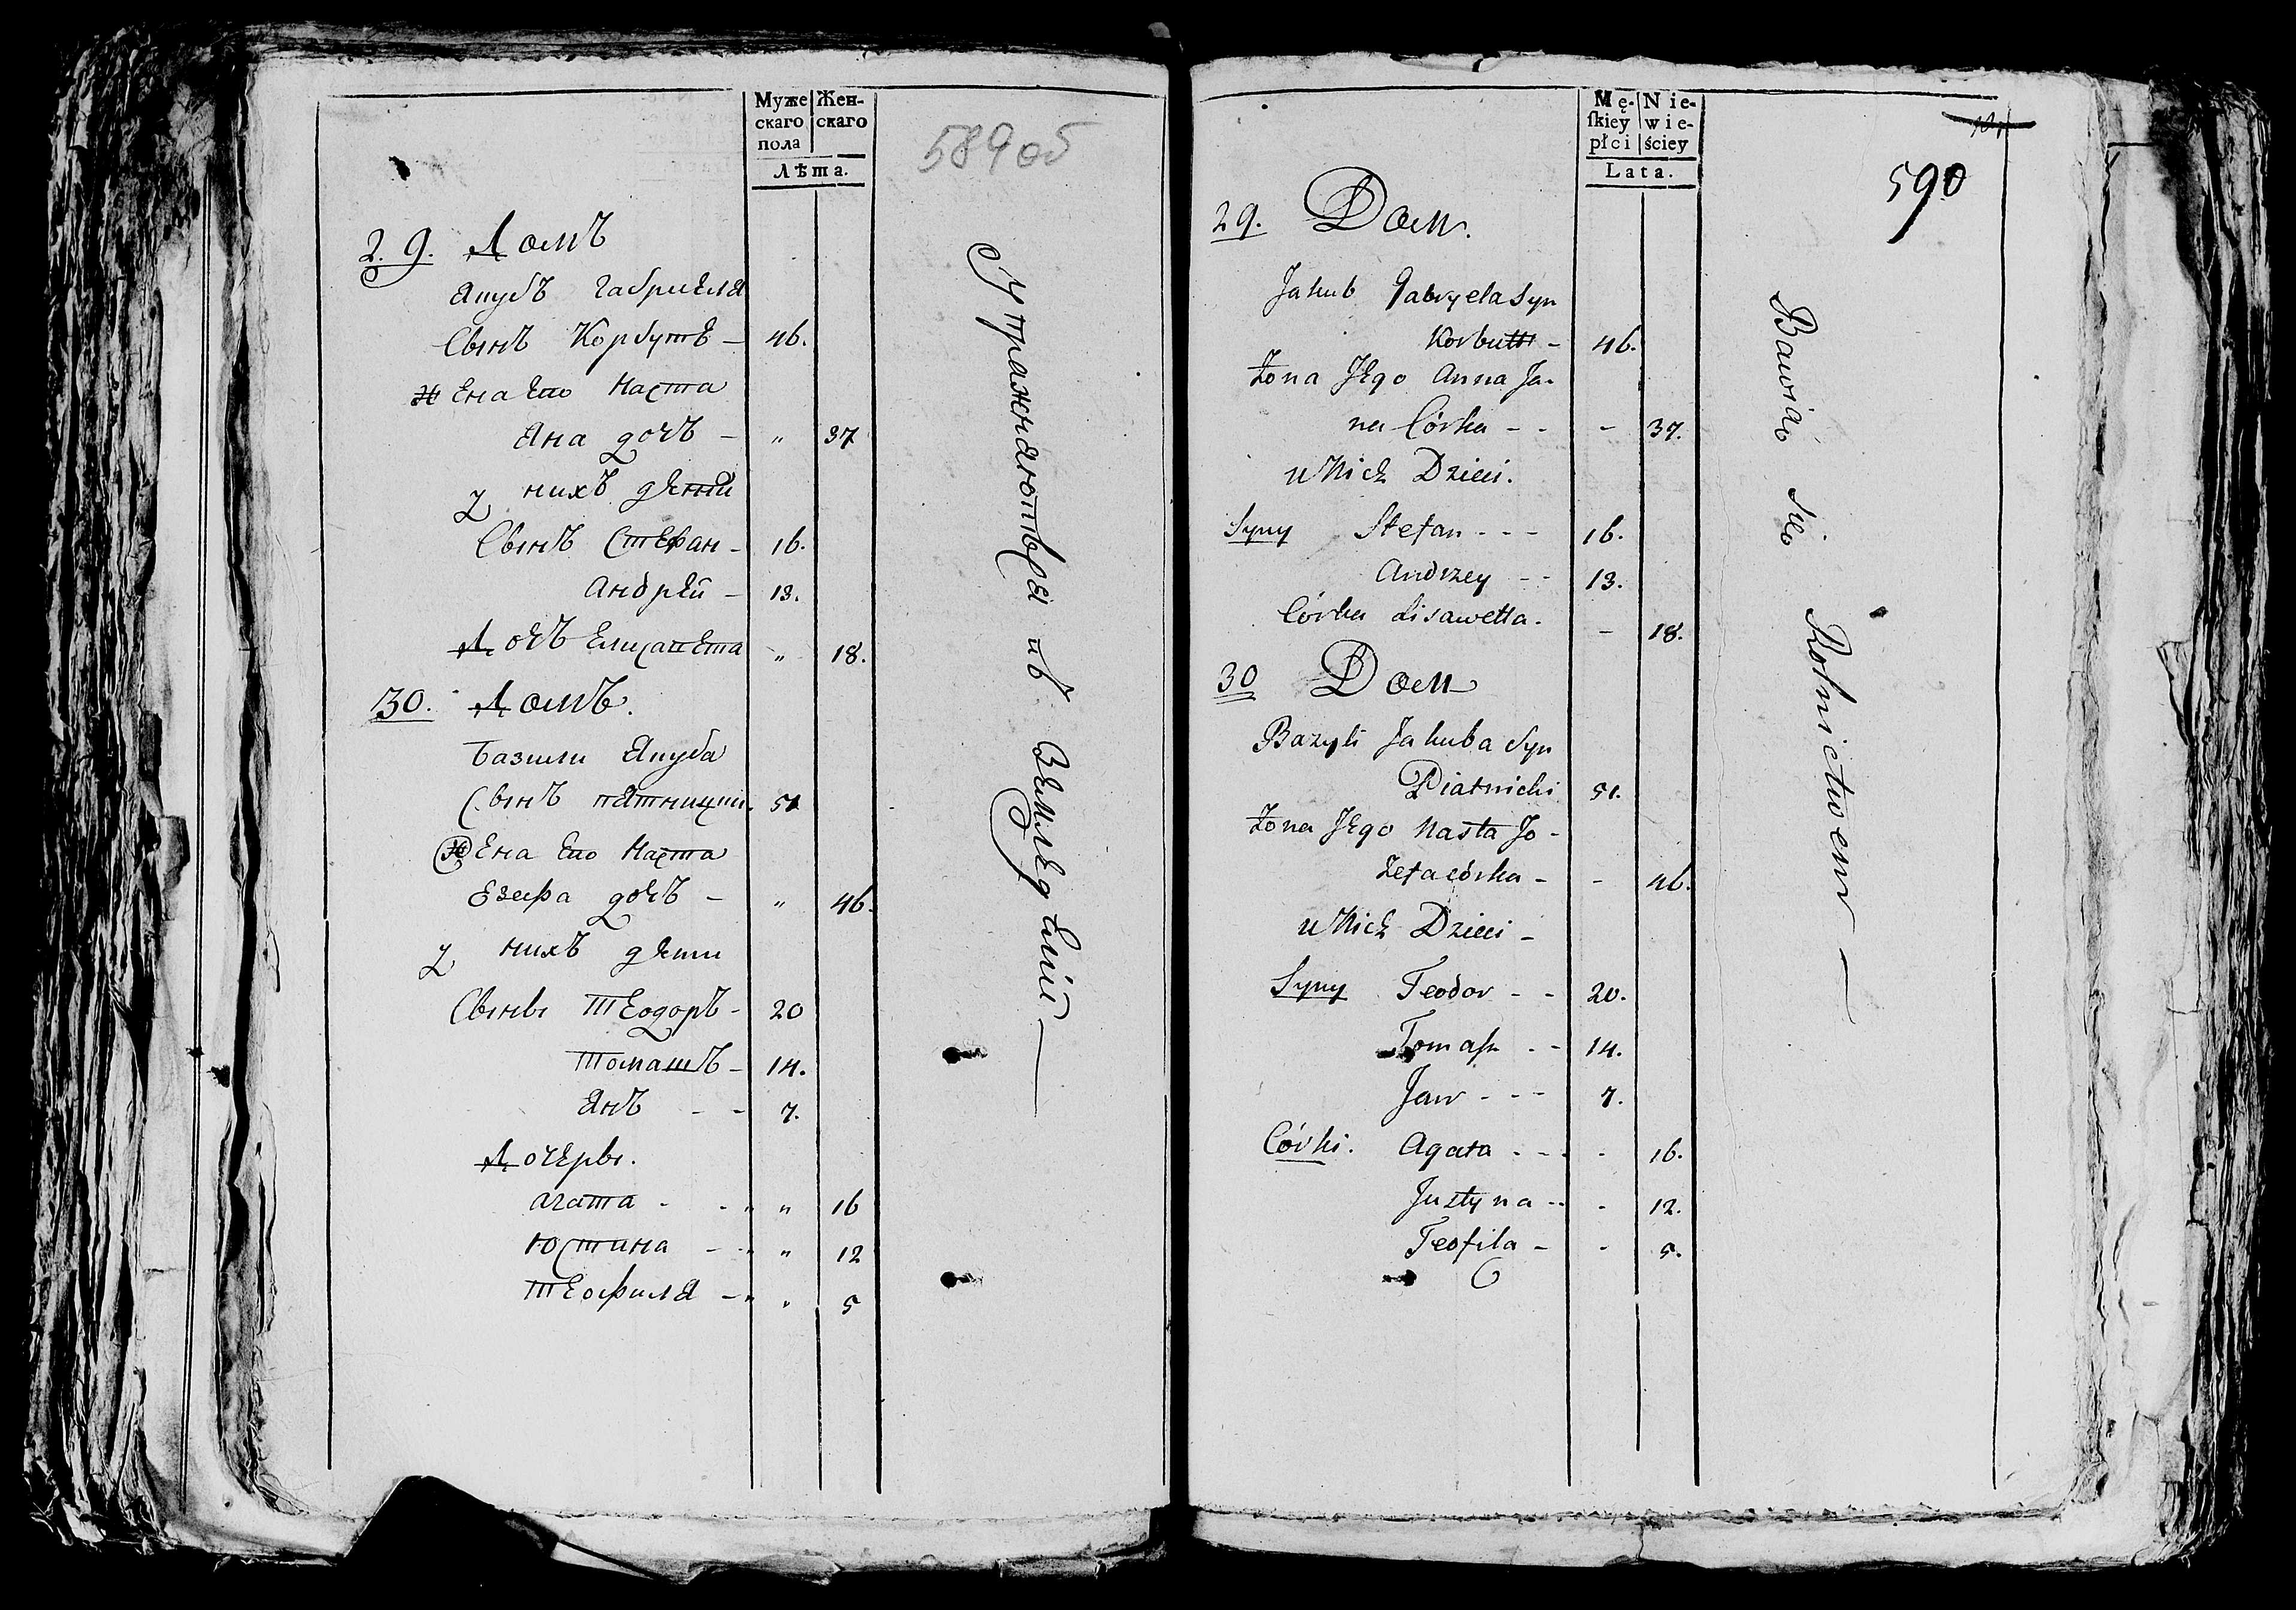 Муже
скаго
пола
Жен-
скаго
Лѣта.
589 об
29. Домъ
Якубъ Габриеля
Сынъ Корбутъ – 46.
Жена его Наста
Яна дочъ – „ 37
у нихъ дѣти
Сынъ Стефан – 16.
Андрей – 13.
Дочъ Елисавета „ 18.
30. Домъ.
Базили Якуба
Сынъ Пятницки. 51
Жена его Наста
Езефа дочъ – „ 46.
у нихъ дѣти
Сыны Теодоръ – 20
Томашъ – 14.
Янъ - - 7.
Дочеры.
Агата - - „ „ 16
Юстина - - „ „ 12
Теофиля - „ „ 5
Упражняютъся въ Земледелии —
Mę-
ſkiey
płci
Nie-
wie-
ściey
Lata.
590
29. Dom.
Jakub Gabryela Syn
Korbutt – 46.
Żona Jego Anna Ja-
na Córka - - - 37.
u Nich Dzieci.
Syny Stefan - - - 16.
Andrzey - - 13.
Córka Lisawetta. - 18.
30 Dom
Bazyli Jakuba Syn
Piatnicki 51.
Żona Jego Nasta Jo-
zefa córka - - 46.
u Nich Dzieci -
Syny Teodor - - 20.
Tomaſz - - 14.
Jan - - - 7.
Córki. Agata - - - - 16.
Justyna - - - 12.
Teofila - - 5.
Bawią się Rolnictwem —